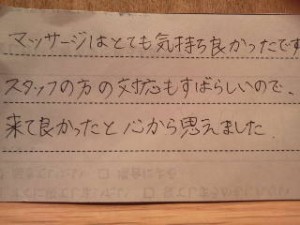 マッサージはとても気持ち良かったです
スタッフの方の対応もすばらしいので、
来て良かったと心から思えました.